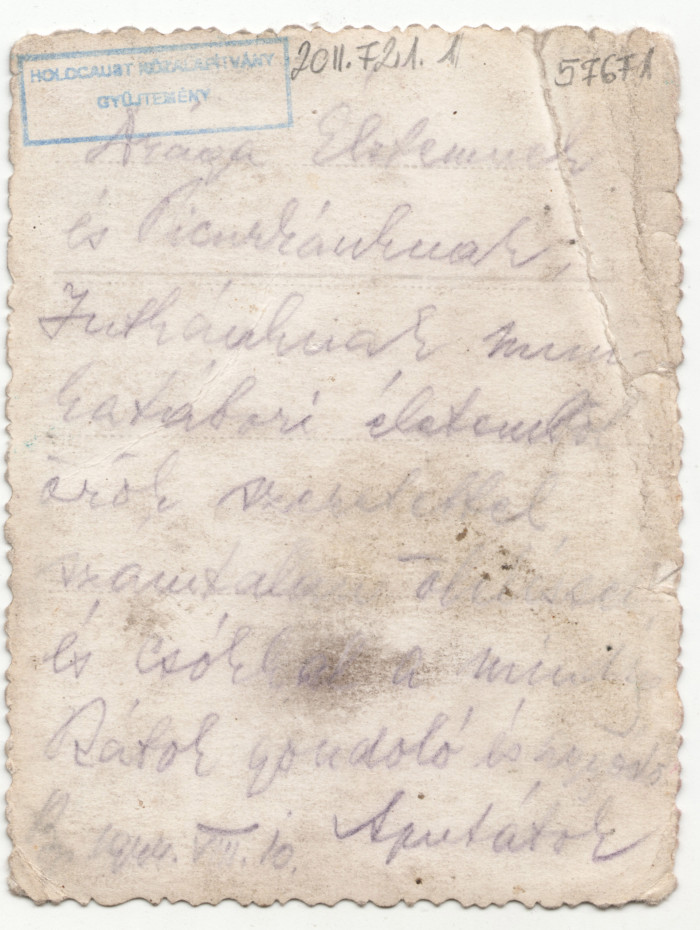 HOLOCAUST KÖZALAPÍTVÁNY
GYŰJTEMÉNY
2011.721.1
57671
Drága Életemnek
és Picurkánknak,
Jutkánknak mun-
katábori életemből
örök szeretettel
számtalan öleléssel
és csókkal a mindig
Rátok gondoló és
Aputátok
1944. VIII. 10.